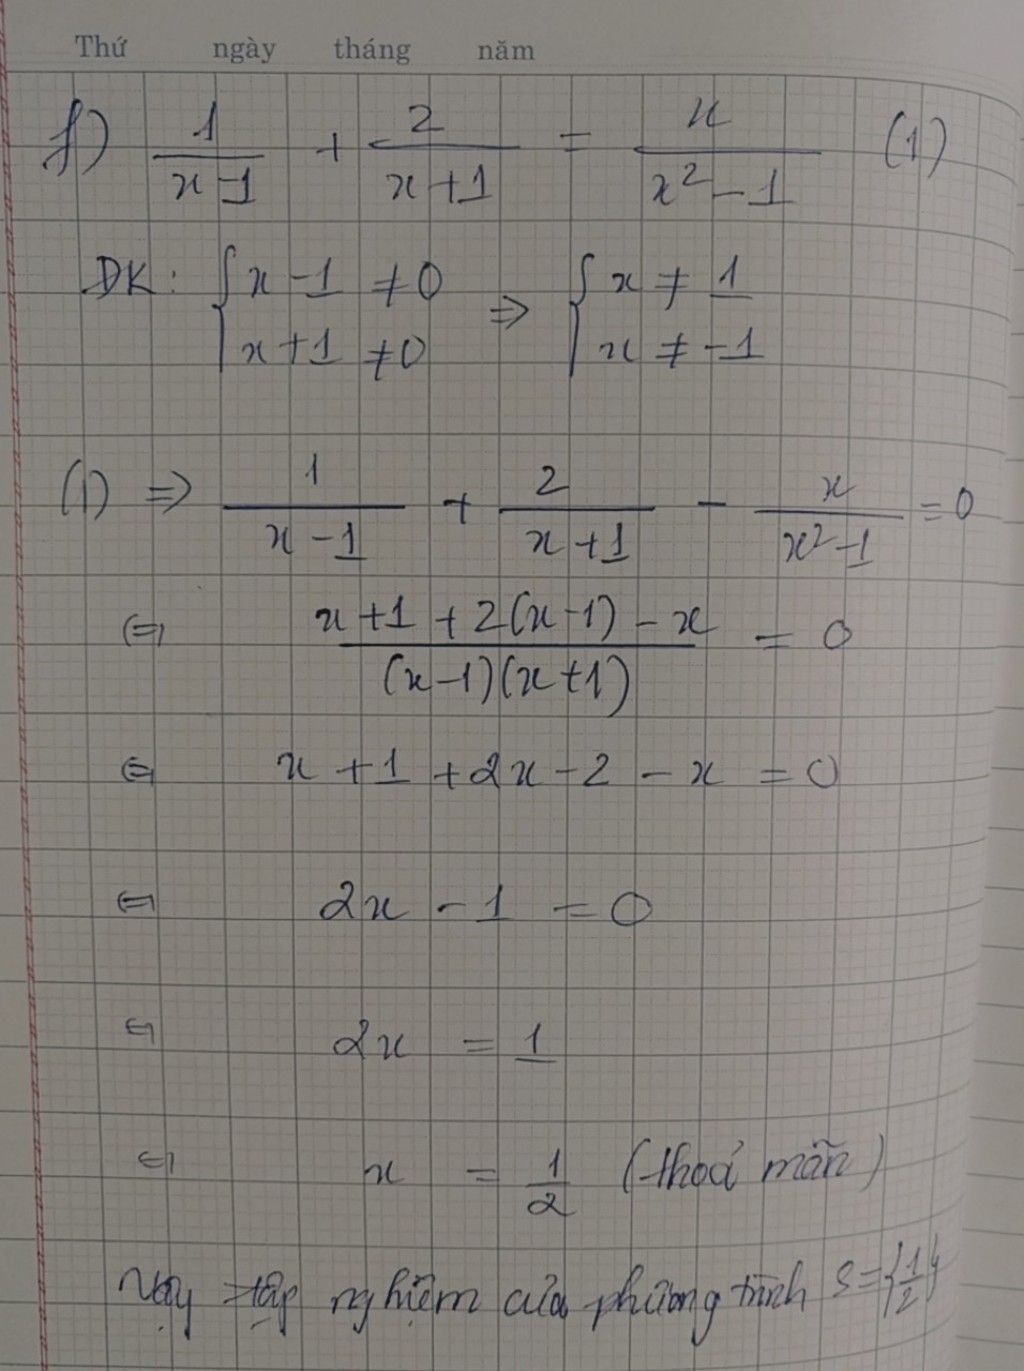 Thứ ngày tháng năm
f) 1/(x-1) + 2/(x+1) = x/(x²-1) (1)
ĐK: { x-1 ≠ 0 ⇒ { x ≠ 1
x+1 ≠ 0 x ≠ -1
(1) ⇒ 1/(x-1) + 2/(x+1) - x/(x²-1) = 0
⇔ (x+1+2(x-1)-x)/((x-1)(x+1)) = 0
⇔ x+1+2x-2-x = 0
⇔ 2x-1 = 0
⇔ 2x = 1
⇔ x = 1/2 (thoả mãn)
Vậy tập nghiệm của phương trình S={1/2}